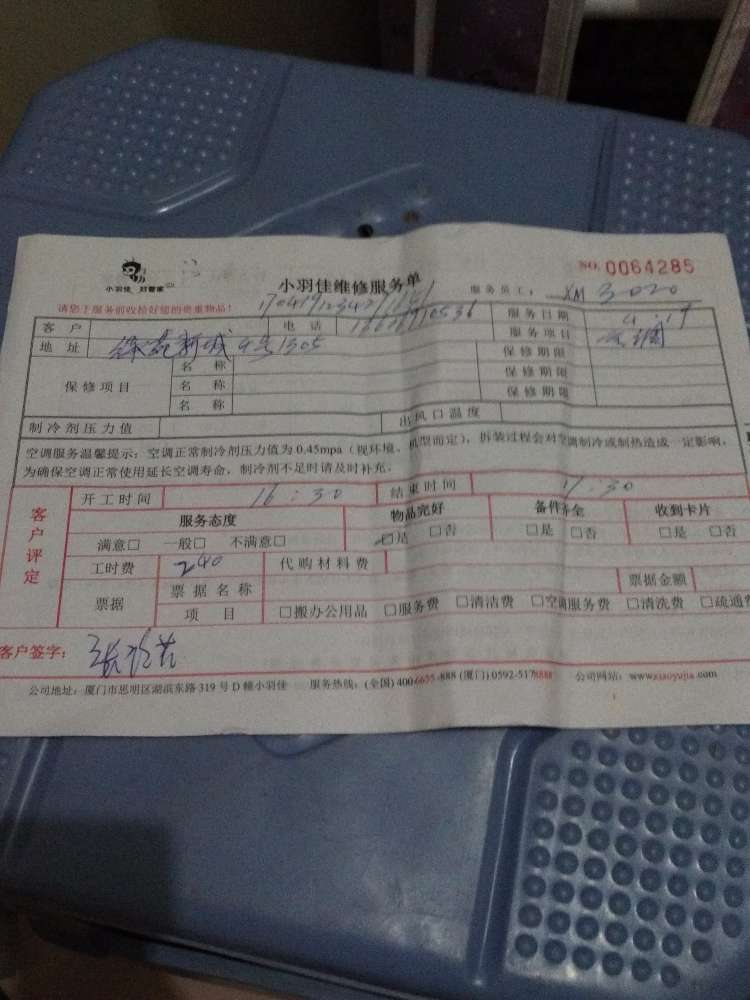 小羽佳 好管家
小羽佳维修服务单
NO. 0064285
请您于服务前收拾好您的贵重物品!
服务员工: XM 3020
客户 电话 服务日期 4.19
地址 4号1305 服务项目 空调
保修项目 名称 保修期限
名称 保修期限
名称 保修期限
制冷剂压力值 出风口温度
空调服务温馨提示:空调正常制冷剂压力值为0.45mpa(视环境、机型而定),拆装过程会对空调制冷或制热造成一定影响,
为确保空调正常使用延长空调寿命,制冷剂不足时请及时补充。
客户评定
开工时间 16:30 结束时间 17:30
服务态度 物品完好 备件齐全 收到卡片
满意□ 一般□ 不满意□ □是 □否 □是 □否 □是 □否
工时费 240 代购材料费
票据 票据名称 票据金额
项目 □搬办公用品 □服务费 □清洁费 □空调服务费 □清洗费 □疏通费
客户签字:
公司地址:厦门市思明区湖滨东路319号D幢小羽佳 服务热线:(全国)400-6655-888 (厦门)0592-5178888 公司网站:www.xiaoyujia.com